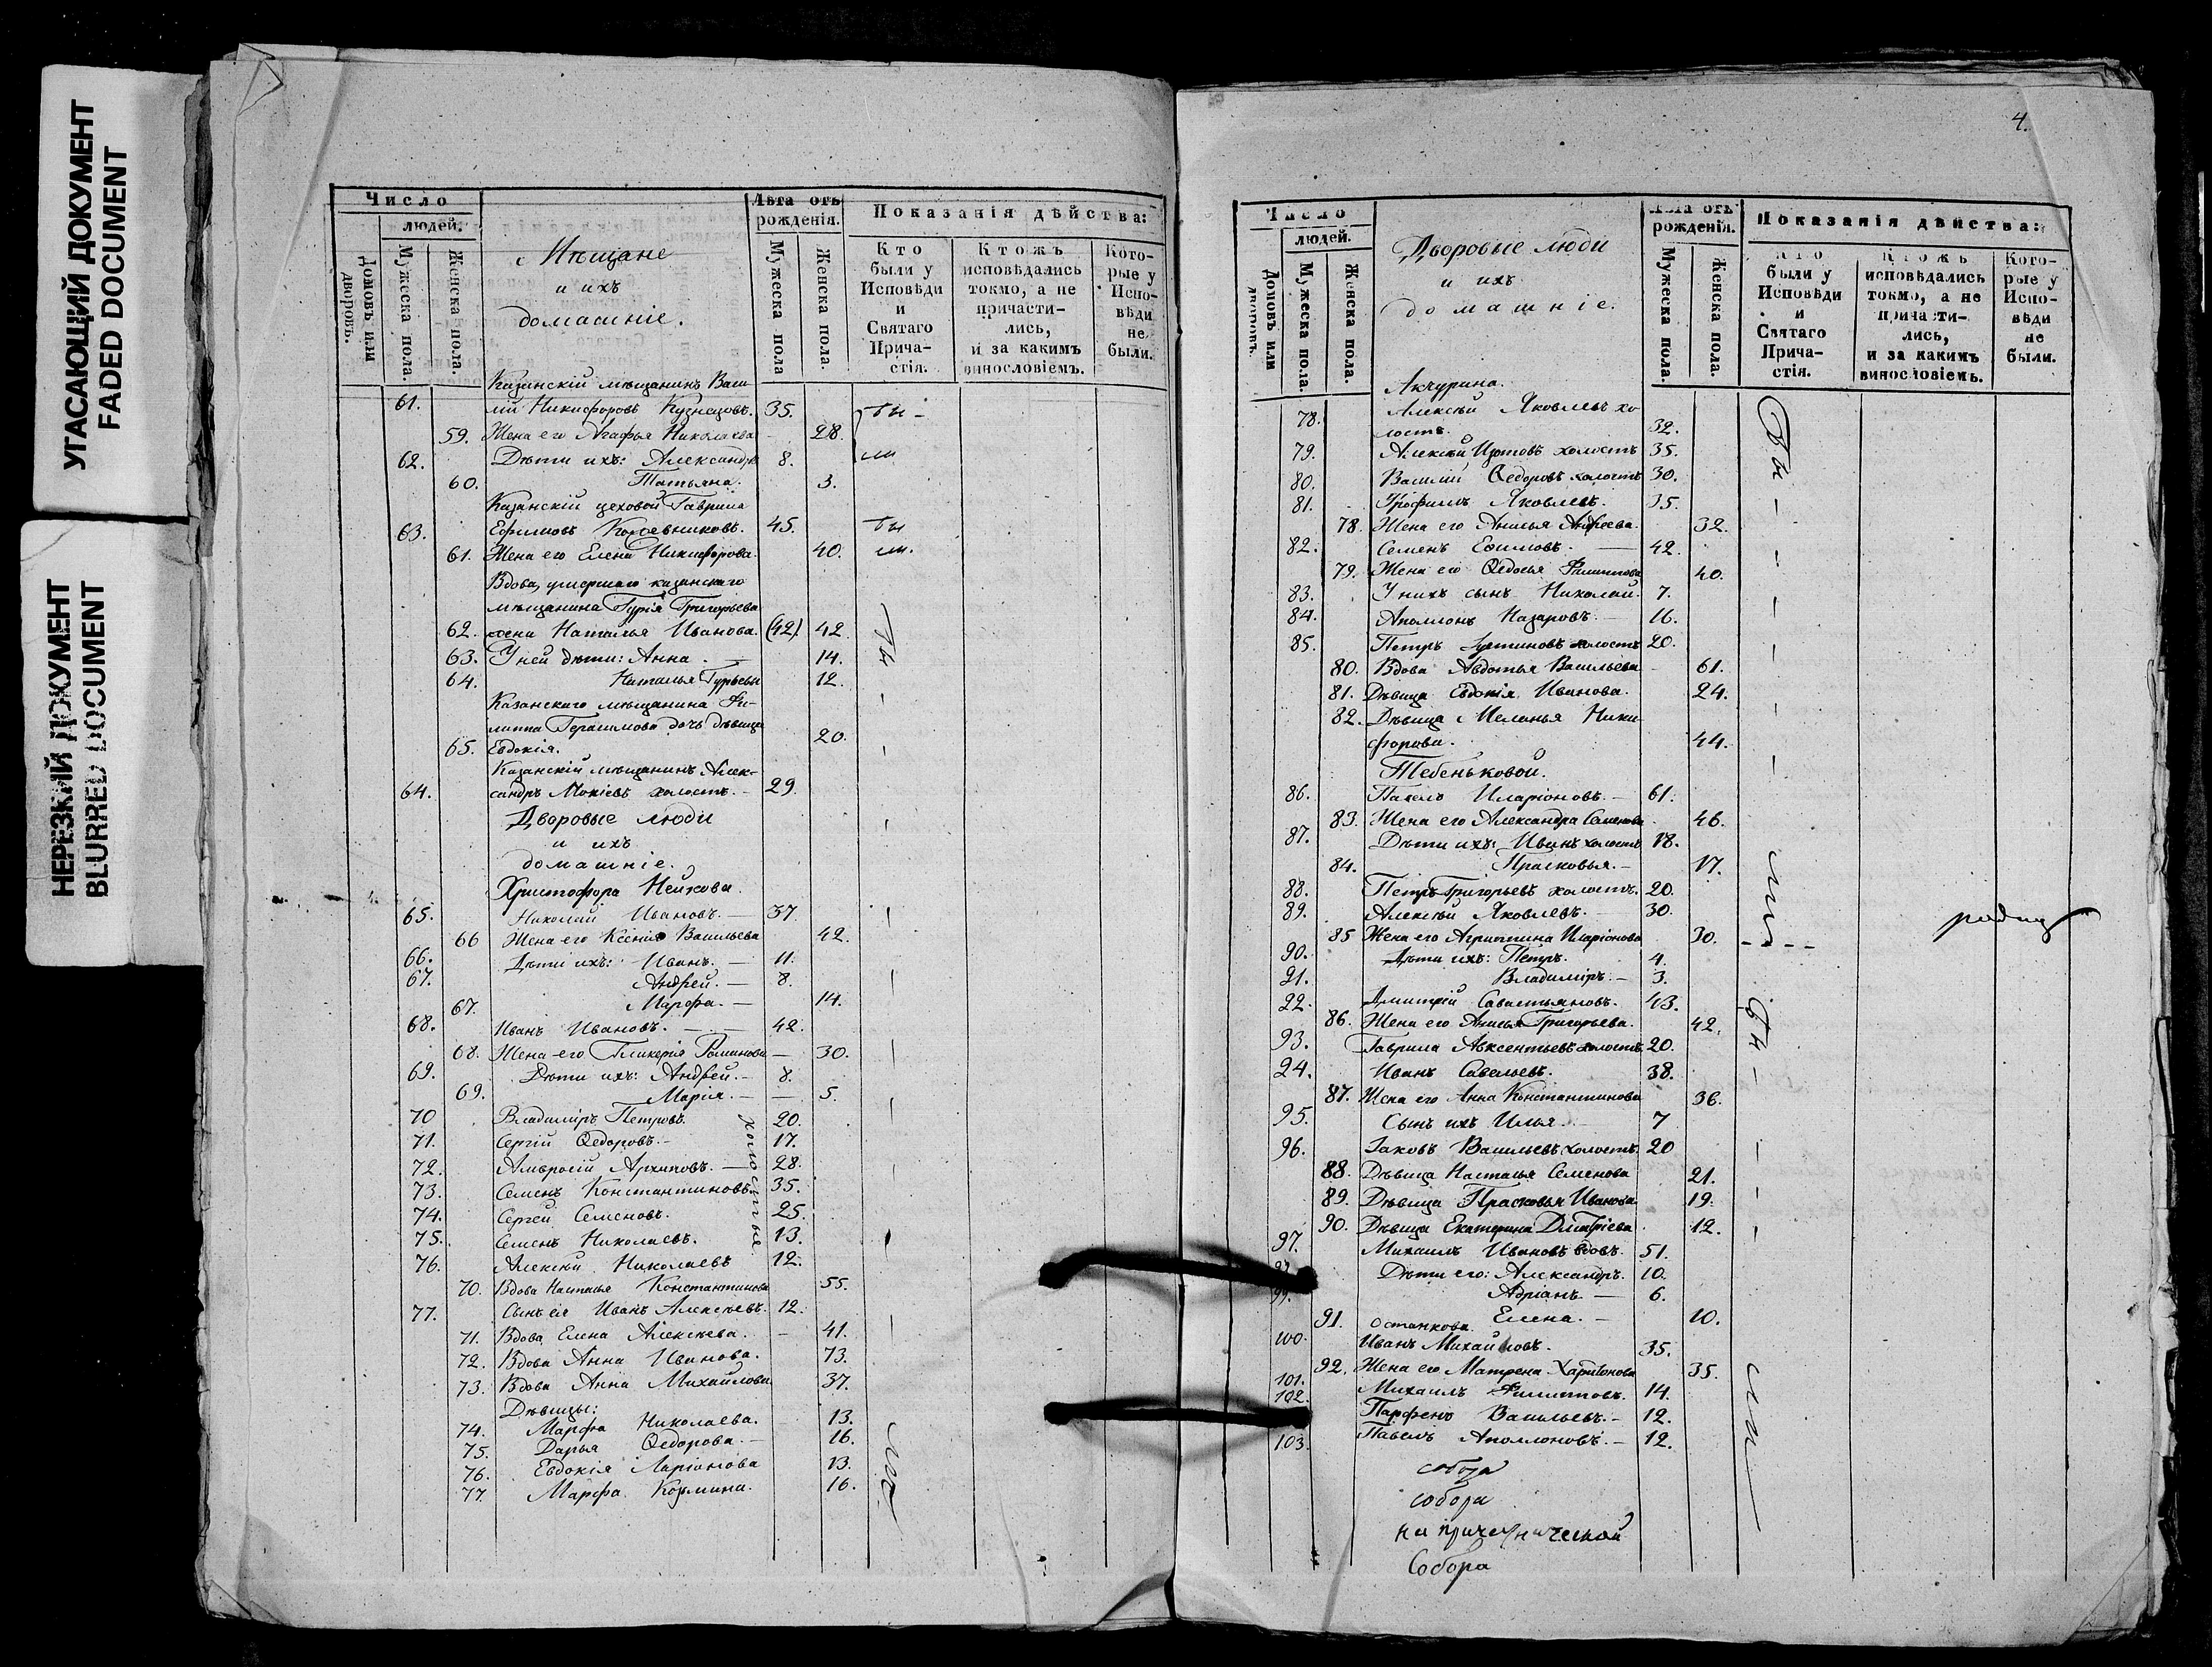 УГАСАЮЩИЙ ДОКУМЕНТ
FADED DOCUMENT
НЕРЕЗКИЙ ДОКУМЕНТ
BLURRED DOCUMENT
Число
людей.
Домовъ или дворовъ.
Мужеска пола.
Женска пола.
Мѣщане
и ихъ
домашніе.
Лѣта отъ рожденія.
Мужеска пола
Женска пола.
Показанія дѣйства:
Кто были у Исповѣди и Святаго Прича-стія.
Ктожъ исповѣдались токмо, а не причасти-лись, и за какимъ винословіемъ.
Кото-рые у Испо-вѣди не были.
Казанскій мѣщанинъ Васи-
61. лій Никифоровъ Кузнецовъ. 35. бы-
59. Жена его Агафья Николаева 28.
62. Дѣти ихъ: Александръ 8. ли
60. Татьяна. 3.
Казанскій цеховой Гаврила
63. Ефимовъ Кожевниковъ. 45. бы
61. Жена его Елена Никифорова. 40. ли.
Вдова, умершаго казанскаго
мѣщанина Гурія Григорьева
62. жена Наталья Иванова. (42) 42. бы
63. У ней дѣти: Анна. 14.
64. Наталья Гурьевы 12.
Казанскаго мѣщанина Фи-
липпа Герасимова дочь дѣвица
65. Евдокія. 20.
Казанскій мѣщанинъ Алек-
64. сандръ Мокіевъ холостъ. 29.
Дворовые люди
и ихъ
домашніе.
Христофора Нейкова.
65. Николай Ивановъ. 37.
66 Жена его Ксенія Васильева 42.
66. Дѣти ихъ: Иванъ. 11.
67. Андрей. 8.
67. Марфа. 14.
68. Иванъ Ивановъ. 42.
68. Жена его Гликерія Романова 30.
69. Дѣти ихъ: Андрей. 8.
69. Марія. 5.
70 Владиміръ Петровъ. 20.
71. Сергій Ѳедоровъ. 17.
72. Амвросій Архиповъ. 28.
73. Семенъ Константиновъ. 35.
74. Сергей Семеновъ. 25.
75. Семенъ Николаевъ. 13.
76. Алексѣй Николаевъ 12.
холостые
70. Вдова Наталья Константинова 55.
77. Сынъ ея Иванъ Алексѣевъ. 12.
71. Вдова Елена Алексѣева. 41.
72. Вдова Анна Иванова. 73.
73. Вдова Анна Михайлова 37.
Дѣвицы:
74. Марфа Николаева. 13.
75. Дарья Ѳедорова. 16.
76. Евдокія Ларіонова 13.
77. Марфа Козьмина. 16.
ли.
4.
Число
людей.
Домовъ или дворовъ.
Мужеска пола.
Женска пола.
Дворовые люди
и ихъ
домашніе.
Лѣта отъ рожденія.
Мужеска пола.
Женска пола.
Показанія дѣйства:
Кто были у Исповѣди и Святаго Прича-стія.
Ктожъ исповѣдались токмо, а не причасти-лись, и за какимъ винословіемъ.
Кото-рые у Испо-вѣди не были.
Акчурина.
78. Алексѣй Яковлевъ хо-
лостъ. 32. Бы
79. Алексѣй холостъ 35.
80. Василій Ѳедоровъ холостъ 30.
81. Трофимъ Яковлевъ. 35.
78. Жена его Анисья Андреева. 32.
82. Семенъ Ефимовъ. 42.
79. Жена его Ѳедосья Филиппова 40.
83. У нихъ сынъ Николай. 7.
84. Аполлонъ Назаровъ. 16.
85. Петръ Устиновъ холостъ 20.
80. Вдова Авдотья Васильева 61.
81. Дѣвица Евдокія Иванова. 24.
82. Дѣвица Меланья Ники-
форова. 44.
Тебеньковой.
86. Павелъ Иларіоновъ. 61.
83. Жена его Александра Семенова 46.
87. Дѣти ихъ: Иванъ холостъ 18.
84. Прасковья. 17.
88. Петръ Григорьевъ холостъ. 20.
89. Алексѣй Яковлевъ. 30. ли
85 Жена его Агриппина Иларіонова 30.
90. Дѣти ихъ: Петръ. 4.
91. Владиміръ. 3.
92. Дмитрій Савастьяновъ. 43.
86. Жена его Анисья Григорьева. 42. бы
93. Гаврила Авксентьевъ холостъ 20.
94. Иванъ Савельевъ. 38.
87. Жена его Анна Константинова 36.
95. Сынъ ихъ Илья. 7
96. Іаковъ Васильевъ холостъ. 20
88. Дѣвица Наталья Семенова 21.
89. Дѣвица Прасковья Иванова. 19.
90. Дѣвица Екатерина Дмитріева. 12.
97. Михаилъ Ивановъ вдовъ. 51.
Дѣти его: Александръ. 10.
99. Адріанъ 6.
91. Елена. 10.
Останкова
100. Иванъ Михайловъ. 35.
92. Жена его Матрена Харитонова 35.
101. Михаилъ Филипповъ. 14. ли
102. Парфенъ Васильевъ. 12.
103. Павелъ Аполлоновъ. 12.
собора
собора
Собора